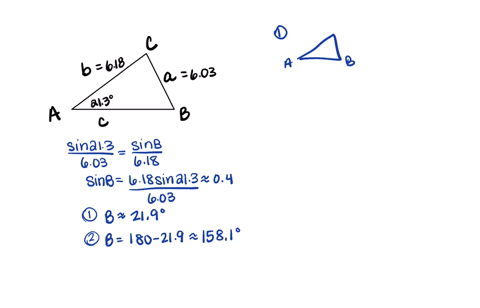 C
b = 6.18
a = 6.03
21.3°
A
c
B
sin21.3/6.03 = sinB/6.18
sinB = 6.18sin21.3/6.03 ≈ 0.4
① B ≈ 21.9°
② B = 180-21.9 ≈ 158.1°
①
A
B